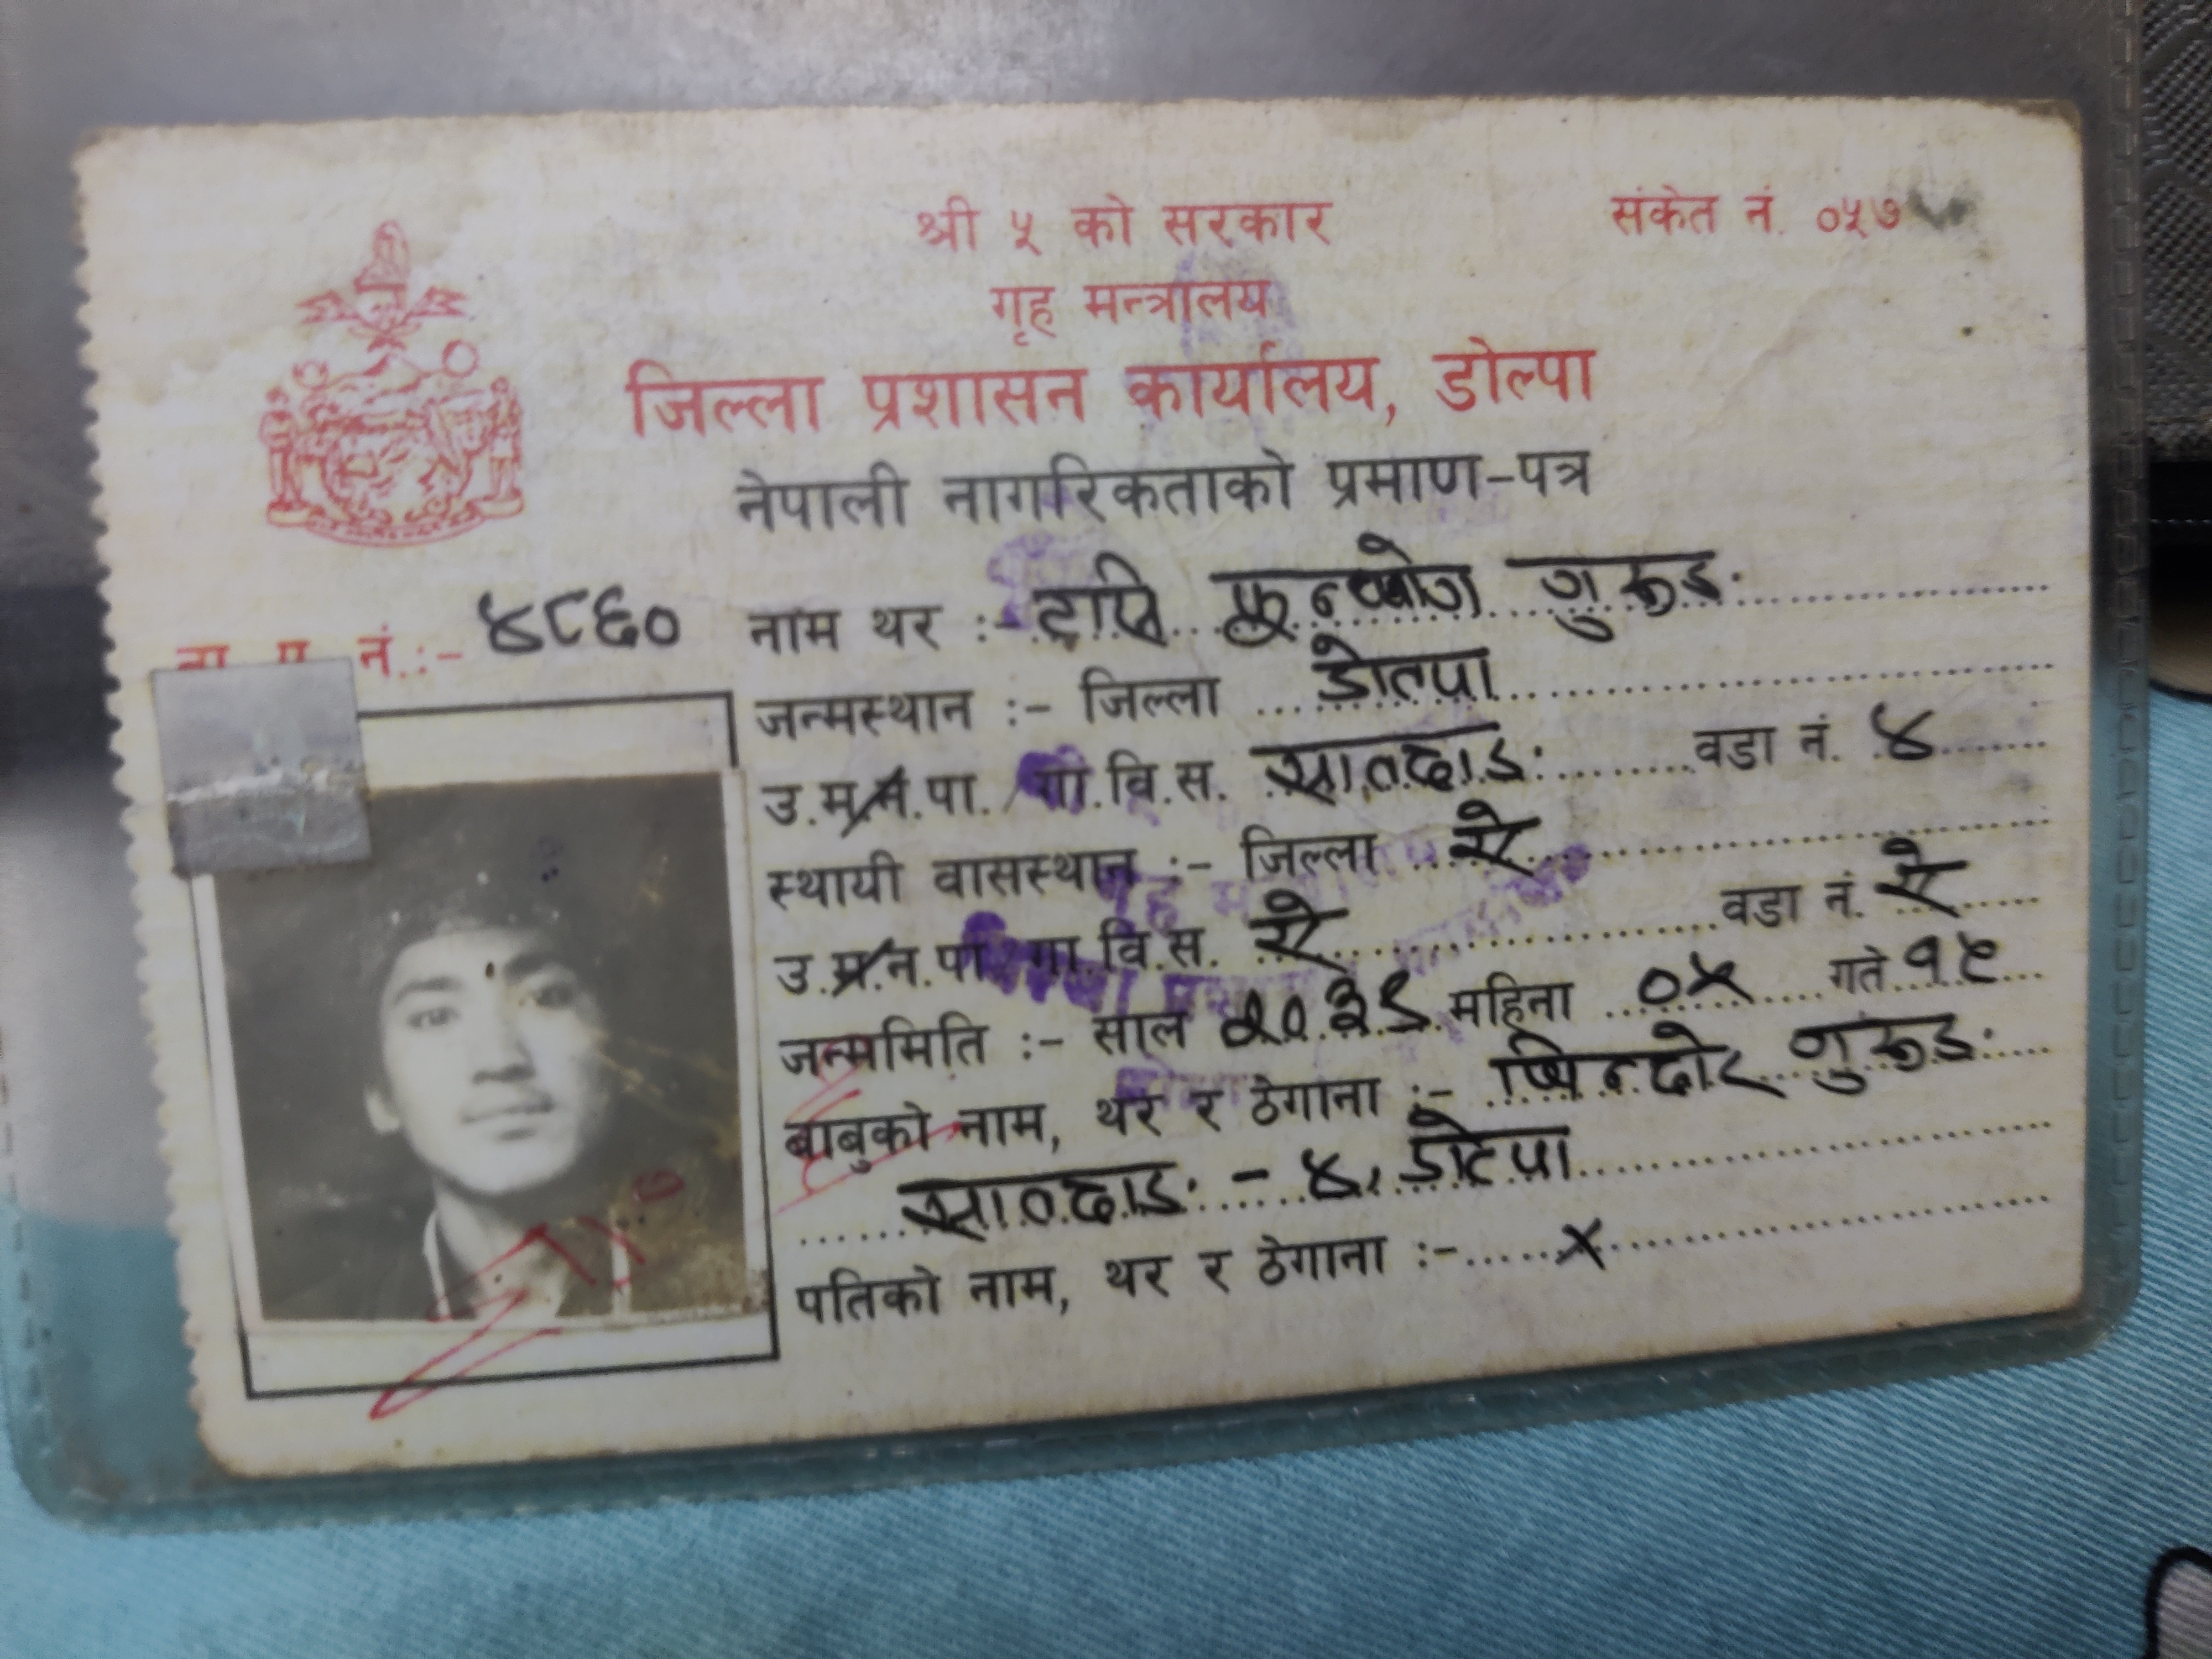 श्री ५ को सरकार
संकेत नं. ०५७
गृह मन्त्रालय
जिल्ला प्रशासन कार्यालय, डोल्पा
नेपाली नागरिकताको प्रमाण-पत्र
ना. प्र. नं.:- ४८६०
नाम थर :- टासि फुन्चोग गुरुङ
जन्मस्थान :- जिल्ला डोल्पा
उ.म.न.पा. गा.वि.स. साल्दाङ वडा नं. ४
स्थायी वासस्थान :- जिल्ला ऐ
उ.म.न.पा गा वि.स. ऐ वडा नं. ऐ
जन्ममिति :- साल महिना ०५ गते १५
बाबुको नाम, थर र ठेगाना :- गुरुङ
साल्दाङ - ४, डोल्पा
पतिको नाम, थर र ठेगाना :- x